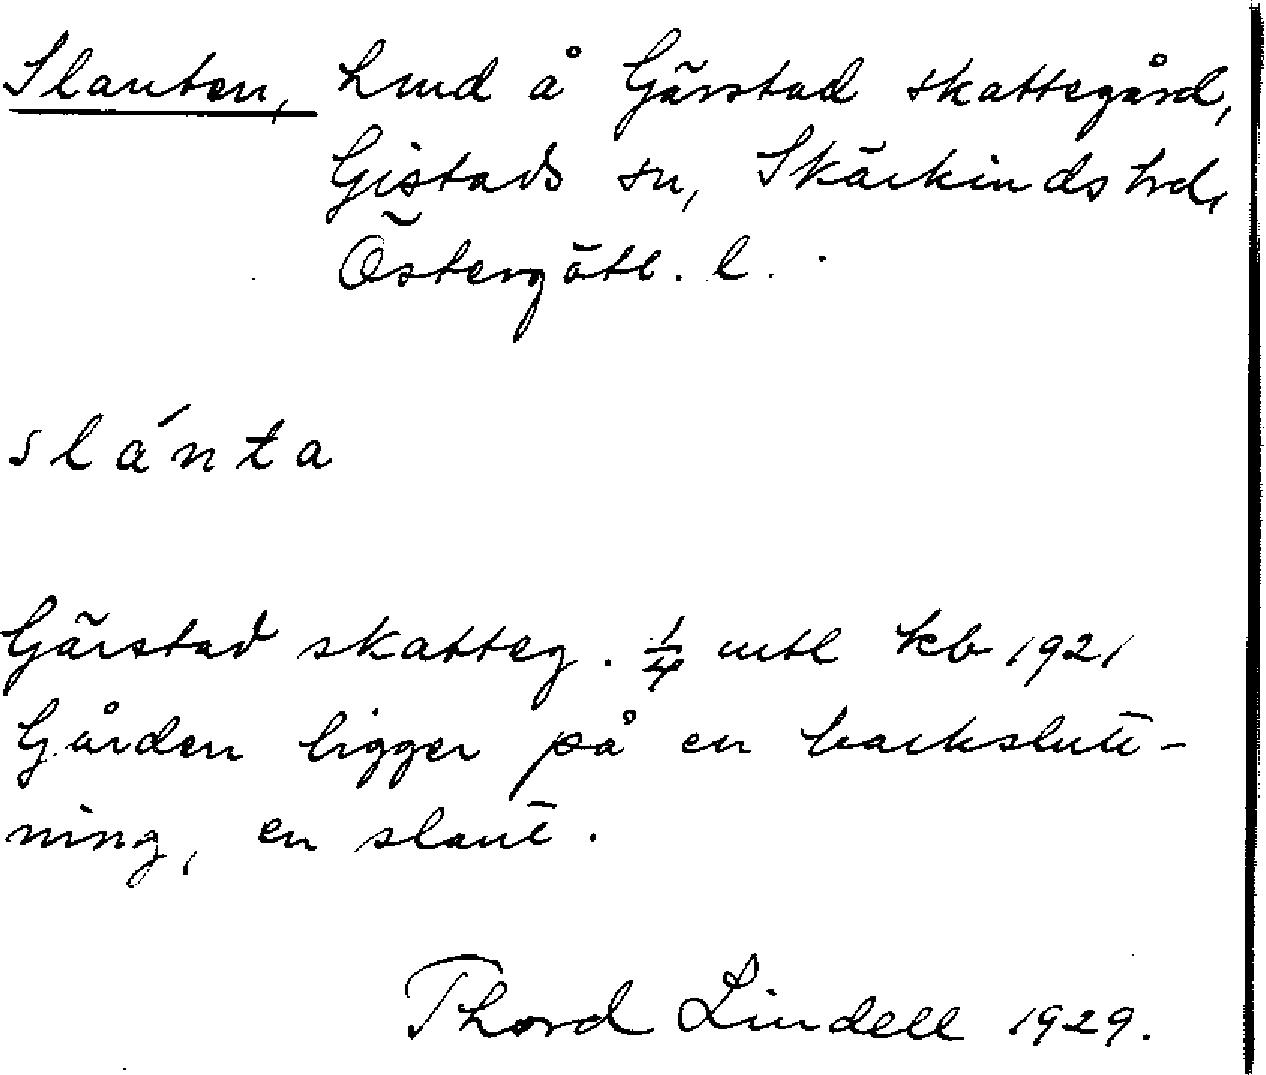 Slanten, hmd å Gärstad skattegård,
Gistads sn, Skärkinds hrd,
Östergötl. l.
slánta
Gärstad skatteg. 1/4 mtl kb 1921
Gården ligger på en backslutt-
ning, en slant.
Thord Lindell 1929.